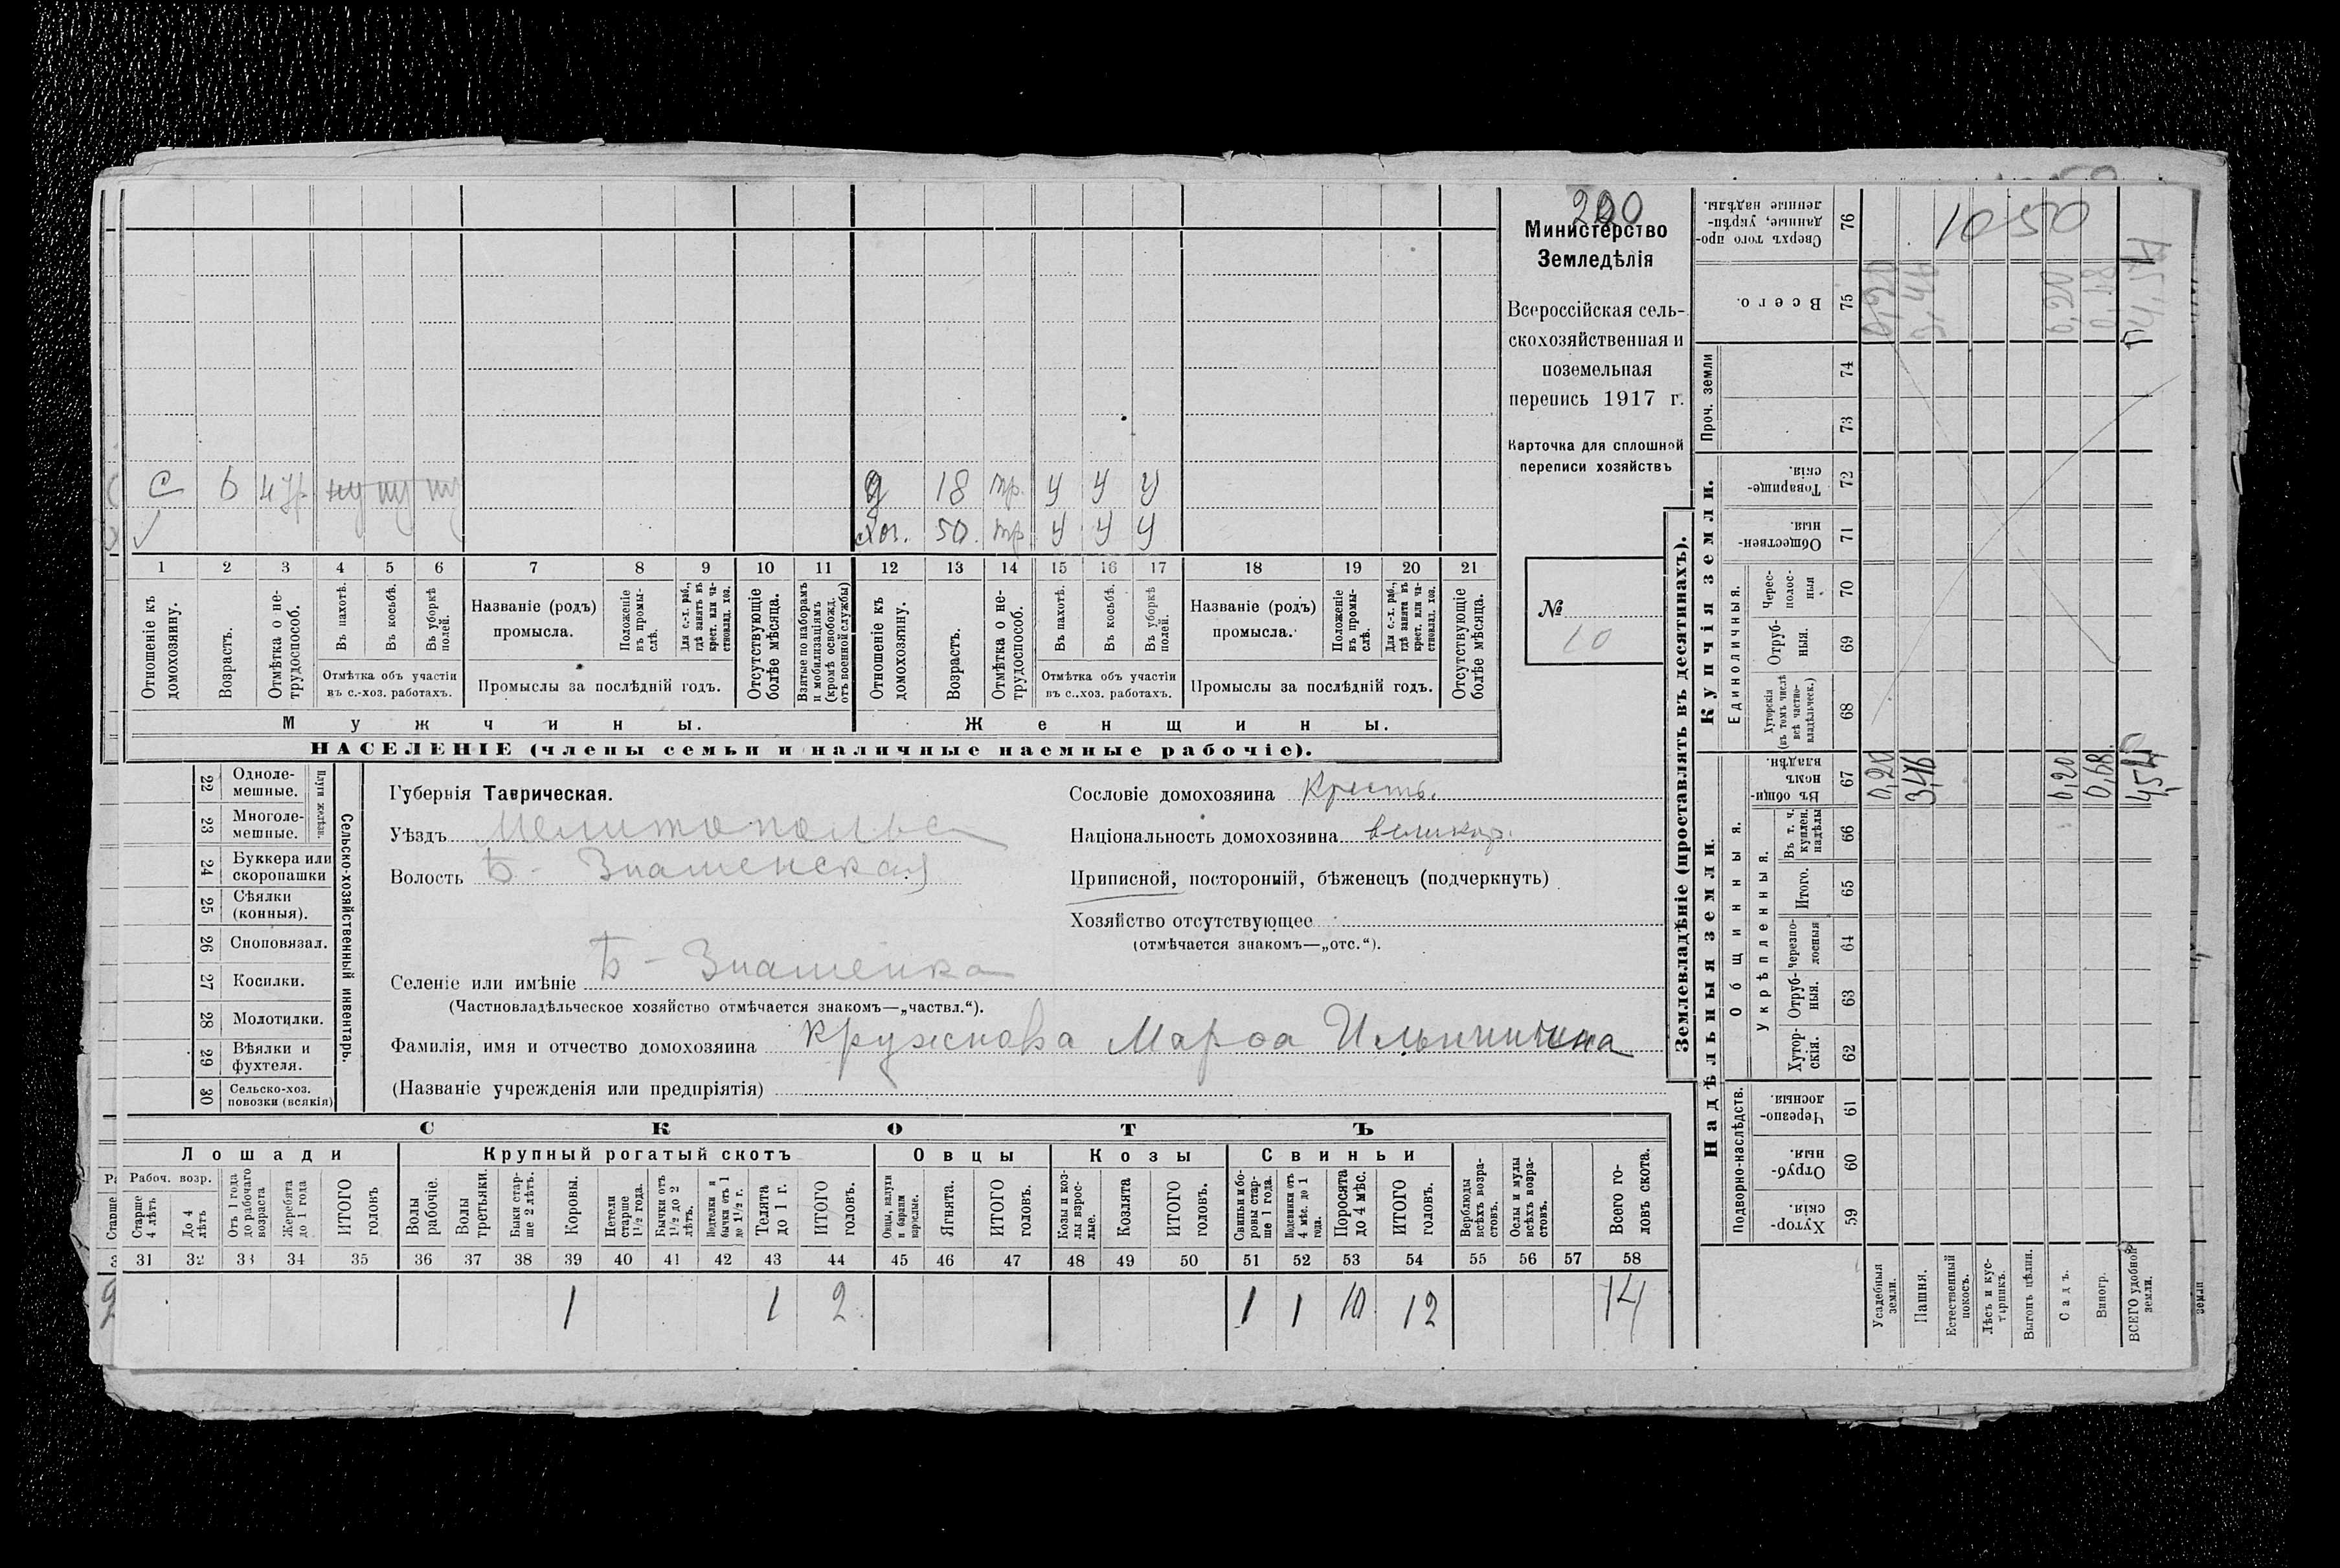 200
Министерство
Земледѣлія
Всероссійская сель-
скохозяйственная и
поземельная
перепись 1917 г.
Карточка для сплошной
переписи хозяйствъ
№
10
с 6 д 18 у у у
хоз. 50 у у у
1 2 3 4 5 6 7 8 9 10 11 12 13 14 15 16 17 18 19 20 21
Отношеніе къ домохозяину.
Возрастъ.
Отмѣтка о не-трудоспособ.
Въ пахотѣ.
Въ косьбѣ.
Въ уборкѣ полей.
Отмѣтка объ участіи
въ с.-хоз. работахъ.
Названіе (родъ)
промысла.
Положеніе въ промы-слѣ.
Для с.-х. раб., гдѣ занятъ въ крест. или ча-стновлад. хоз.
Промыслы за послѣдній годъ.
Отсутствующіе болѣе мѣсяца.
Взятые по наборамъ и мобилизаціямъ (кромѣ освобожд. отъ военной службы)
Отношеніе къ домохозяину.
Возрастъ.
Отмѣтка о не-трудоспособ.
Въ пахотѣ.
Въ косьбѣ.
Въ уборкѣ полей.
Отмѣтка объ участіи
въ с.-хоз. работахъ.
Названіе (родъ)
промысла.
Положеніе въ промы-слѣ.
Для с.-х. раб., гдѣ занята въ крест. или ча-стновлад. хоз.
Промыслы за послѣдній годъ.
Отсутствующіе болѣе мѣсяца.
Мужчины.
Женщины.
НАСЕЛЕНІЕ (члены семьи и наличные наемные рабочіе).
22 Одноле-мешные.
23 Многоле-мешные.
Плуги желѣзн.
24 Буккера или скоропашки
25 Сѣялки (конныя).
26 Сноповязал.
27 Косилки.
28 Молотилки.
29 Вѣялки и фухтеля.
30 Сельско-хоз. повозки (всякія)
Сельско-хозяйственный инвентарь.
Губернія Таврическая.
Уѣздъ Мелитопольс
Волость Б-Знаменская
Селеніе или имѣніе Б-Знаменка
(Частновладѣльческое хозяйство отмѣчается знакомъ—„частвл.“).
Фамилія, имя и отчество домохозяина Кружнова Марфа Ильинична
(Названіе учрежденія или предпріятія)
Сословіе домохозяина Крестъ.
Національность домохозяина великор.
Приписной, посторонній, бѣженецъ (подчеркнуть)
Хозяйство отсутствующее
(отмѣчается знакомъ—„отс.“).
СКОТЪ
Лошади
Крупный рогатый скотъ
Овцы
Козы
Свиньи
Рабоч. возр.
Старше 4 лѣтъ
До 4 лѣтъ
Отъ 1 года до рабочаго возраста
Жеребята до 1 года
ИТОГО головъ
Волы рабочіе.
Волы третьяки.
Быки стар-ше 2 лѣтъ.
Коровы.
Нетели старше 1½ года.
Бычки отъ 1½ до 2 лѣтъ.
Подтелки и бычки отъ 1 до 1½ г.
Телята до 1 г.
ИТОГО головъ.
Овцы, валухи и бараны взрослые.
Ягнята.
ИТОГО головъ.
Козы и коз-лы взрос-лые.
Козлята
ИТОГО головъ.
Свиньи и бо-ровы стар-ше 1 года.
Подсвинки отъ 4 мѣс. до 1 года.
Поросята до 4 мѣс.
ИТОГО головъ.
Верблюды всѣхъ возра-стовъ.
Ослы и мулы всѣхъ возра-стовъ.
Всего го-ловъ скота.
31 32 33 34 35 36 37 38 39 40 41 42 43 44 45 46 47 48 49 50 51 52 53 54 55 56 57 58
1 1 2 1 1 10 12 14
Землевладѣніе (проставлять въ десятинахъ).
Надѣльныя земли.
Купчія земли.
Проч. земли
Подворно-наслѣдств.
Общинныя.
Укрѣпленныя.
Единоличныя.
Хутор-скія. 59
Отруб-ныя. 60
Черезпо-лосныя. 61
Хутор-скія. 62
Отруб-ныя. 63
Черезпо-лосныя 64
Итого. 65
Въ т. ч. куплен. надѣлы 66
Въ общи-номъ владѣн. 67
Хуторскія (въ томъ числѣ всѣ частно-владѣльческ.) 68
Отруб-ныя. 69
Черес-полос-ныя 70
Обществен-ныя. 71
Товарище-скія. 72
73
74
Всего. 75
Сверхъ того про-данные, укрѣп-ленные надѣлы. 76
1050
Усадебныя земли. 0,20 0,20
Пашня. 3,46 3,46
Естественный покосъ.
Лѣсъ и кус-тарникъ.
Выгонъ цѣлин.
Садъ. 0,20 0,20
Виногр. 0,68 0,68
ВСЕГО удобной земли. 4,54 4,54